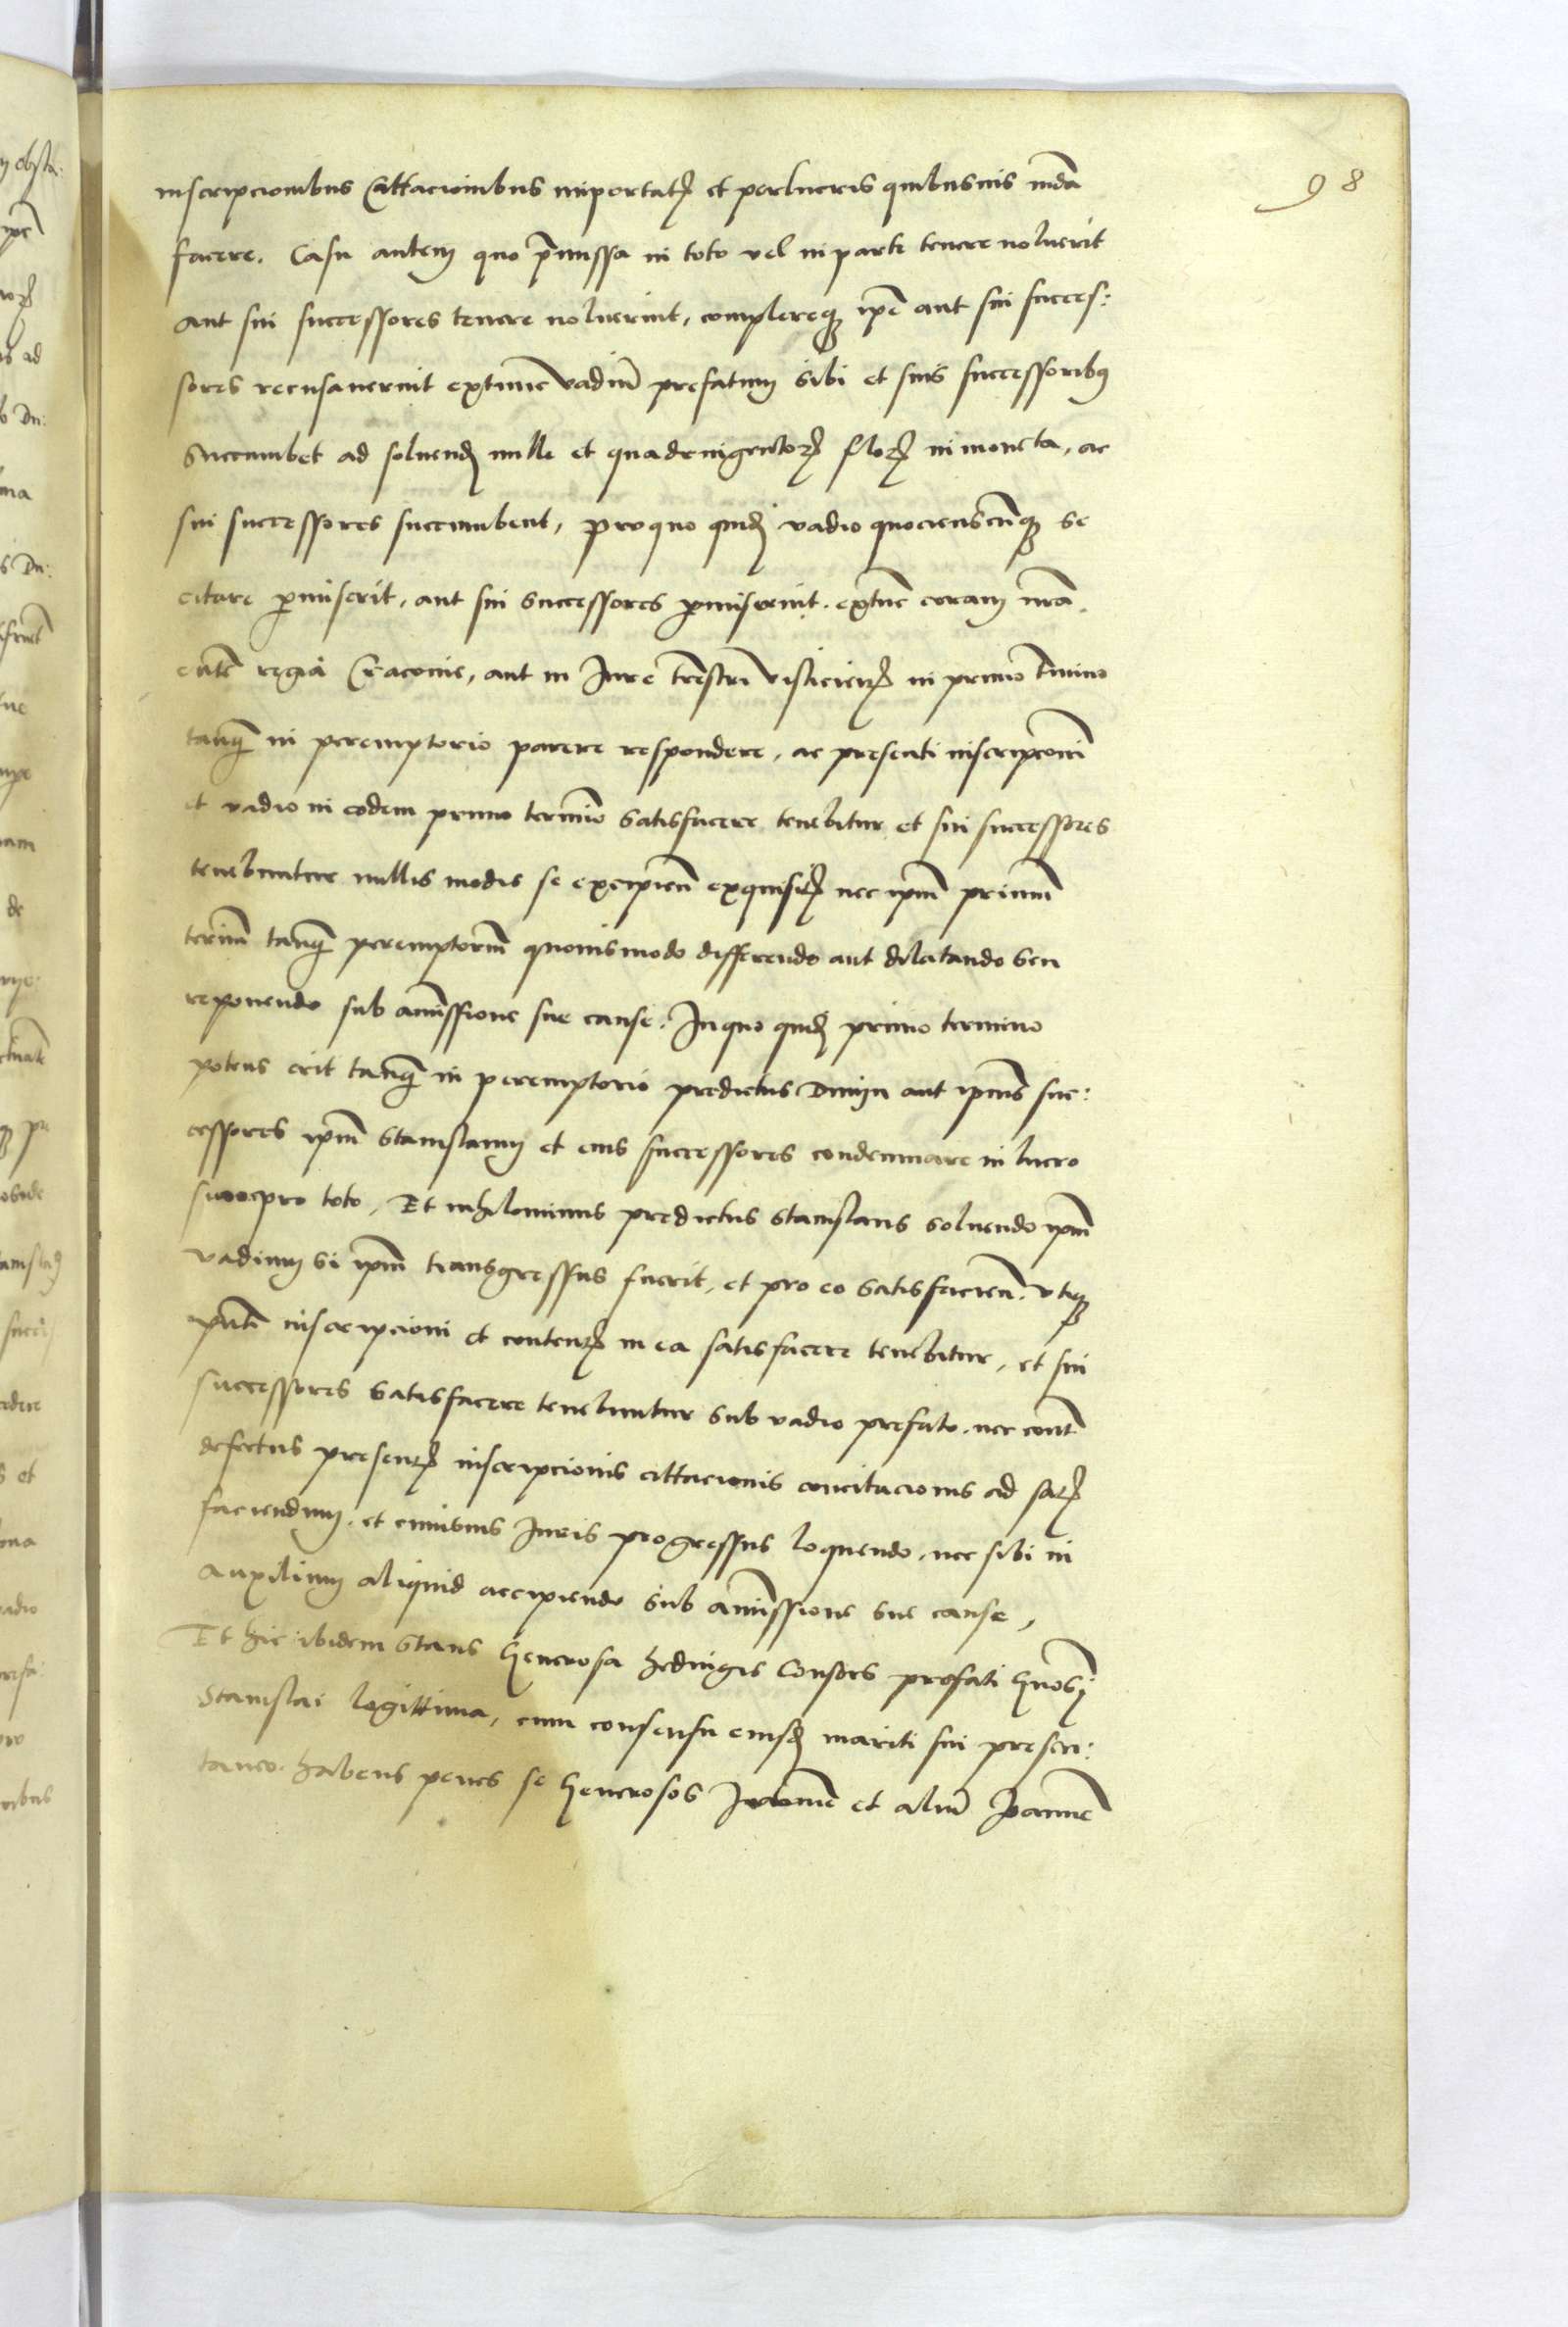 98
inscripcionibus Cittacionibus importatꝝ et perlucris quibusuis mḋa
facere. Casu autem quo p̄missa in toto vel in parte tenere noluerit
aut sui successores tenere noluerint, complereqꝫ ip̄e aut sui succes:
sores recusauerint extunc vadiū prefatum sibi et suis successoribꝫ
Succumbet ad soluendꝫ mille et quadringentoꝝ floꝝ in moneta, ac
sui successores succumbent, pro quo quidꝫ vadio quocienscūqꝫ se
citare ꝑmiserit, aut sui successores ꝑmiserint. extūc coram
regia Cracouie, aut in Jure tr̄estri vislicienꝝ in primo tmino
tanqꝫ in peremptorio parere respondere, ac presenti inscripconi
et vadio in eodem primo termīo satisfacere tenebitur et sui successores
tenebuntur nullis modis se excipien̄ exquisitꝝ nec ipm̄ primum
terminū tanqꝫ peremptoriū quouismodo differendo aut dilatando seu
reponendo sub amissione sue cause. In quo quidꝫ primo termino
potens erit tanqꝫ in peremptorio predictus aut ipius suc:
cessores ipm̄ Stanislaum et eius successores condemnare in lucro
suo pro toto, Et nihilominus predictus Stanislaus soluendo ipm̄
vadium si ipm̄ transgressus fuerit, et pro eo satisfacien̄. vtiqꝫ
pn̄ti inscripcioni et contentꝝ in ea satisfacere tenebitur, et sui
successores satisfacere tenebuntur sub vadio prefato. nec cont̄
defectus presentꝝ inscripcionis cittacionis concitacionis ad satꝝ
faciendum. et cuiusuis Juris progressus loquendo. nec sibi in
auxilium aliquid accipiendo sub amissione sue cause,
Et hic ibidem stans Generosa Hedvigis Consors prefati Gnosi
Stanislai legittima, cum consensu eiusdꝫ mariti sui presen:
taneo. habens penes se Generosos Joannē et aliū Joannē